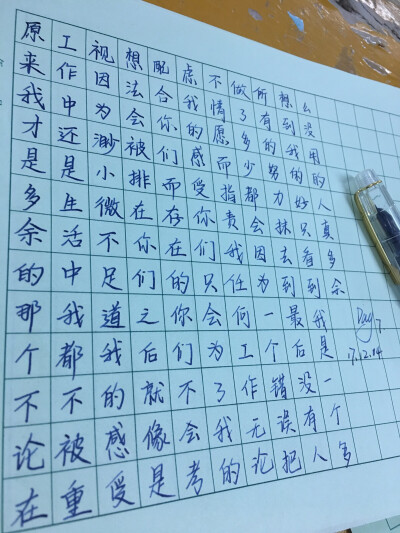 原来我才是多余的那个不论在
工作中还是生活中我都不被重
视因为渺小微不足道我的感受
想法会被排在你们之后就像是
配合你们而存在的你们不会考
虑我的感受你们只会为了我的
不情愿而指责我任何工作无论
做了多少都会因为一个错误把
所有的努力抹去到最后没有人
想到我的好只看到我是一个多
么没用的人真多余
Day 7
17.12.04